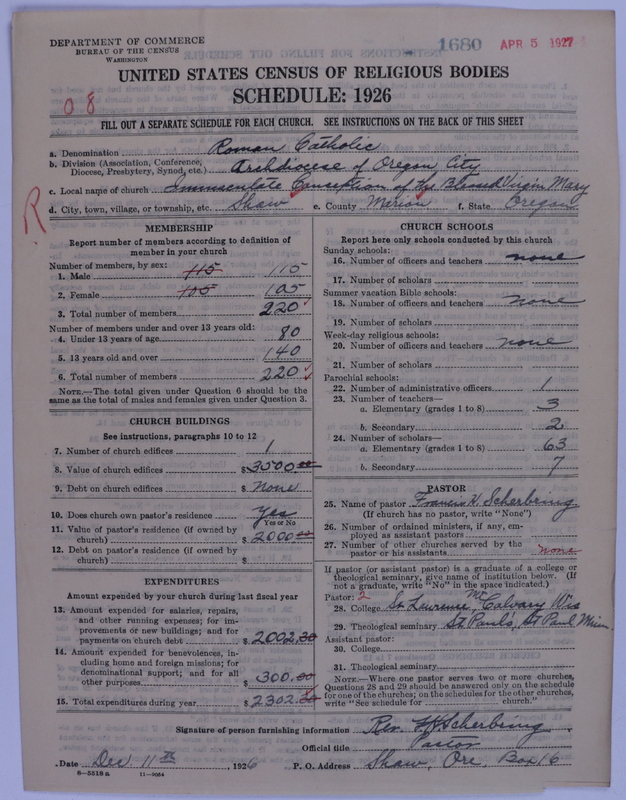 DEPARTMENT OF COMMERCE
BUREAU OF THE CENSUS
WASHINGTON
1680
APR 5 1927
UNITED STATES CENSUS OF RELIGIOUS BODIES
SCHEDULE: 1926
0 8
FILL OUT A SEPARATE SCHEDULE FOR EACH CHURCH. SEE INSTRUCTIONS ON THE BACK OF THIS SHEET
a. Denomination Roman Catholic
b. Division (Association, Conference, Diocese, Presbytery, Synod, etc.) Archdiocese of Oregon City
c. Local name of church Immaculate Conception of the Blessed Virgin Mary
d. City, town, village, or township, etc. Shaw e. County Marion f. State Oregon
R
MEMBERSHIP
Report number of members according to definition of member in your church
Number of members, by sex:
1. Male 115 115
2. Female 105 105
3. Total number of members 220
Number of members under and over 13 years old:
4. Under 13 years of age 80
5. 13 years old and over 140
6. Total number of members 220
NOTE.—The total given under Question 6 should be the same as the total of males and females given under Question 3.
CHURCH BUILDINGS
See instructions, paragraphs 10 to 12
7. Number of church edifices 1
8. Value of church edifices $3500.00
9. Debt on church edifices $ None
10. Does church own pastor's residence Yes
Yes or No
11. Value of pastor's residence (if owned by church) $ 2000.00
12. Debt on pastor's residence (if owned by church) $
EXPENDITURES
Amount expended by your church during last fiscal year
13. Amount expended for salaries, repairs, and other running expenses; for improvements or new buildings; and for payments on church debt $ 2002.30
14. Amount expended for benevolences, including home and foreign missions; for denominational support; and for all other purposes $ 300.00
15. Total expenditures during year $ 2302.30
CHURCH SCHOOLS
Report here only schools conducted by this church
Sunday schools:
16. Number of officers and teachers none
17. Number of scholars
Summer vacation Bible schools:
18. Number of officers and teachers none
19. Number of scholars
Week-day religious schools:
20. Number of officers and teachers none
21. Number of scholars
Parochial schools:
22. Number of administrative officers 1
23. Number of teachers—
a. Elementary (grades 1 to 8) 3
b. Secondary 2
24. Number of scholars—
a. Elementary (grades 1 to 8) 63
b. Secondary 7
PASTOR
25. Name of pastor Francis W. Scherbring
(If church has no pastor, write "None")
26. Number of ordained ministers, if any, employed as assistant pastors
27. Number of other churches served by the pastor or his assistants none
If pastor (or assistant pastor) is a graduate of a college or theological seminary, give name of institution below. (If not a graduate, write "No" in the space indicated.)
Pastor: 2
28. College St. Lawrence, Mt. Calvary Wis
29. Theological seminary St. Pauls, St Paul Minn
Assistant pastor:
30. College
31. Theological seminary
NOTE.—Where one pastor serves two or more churches, Questions 28 and 29 should be answered only on the schedule for one of the churches; on the schedules for the other churches, write "See schedule for church.
Signature of person furnishing information Rev. F. W. Scherbring
Official title Pastor
Date Dec. 11th, 1926 P. O. Address Shaw, Ore, Box 16
8—5518 a 11—9064